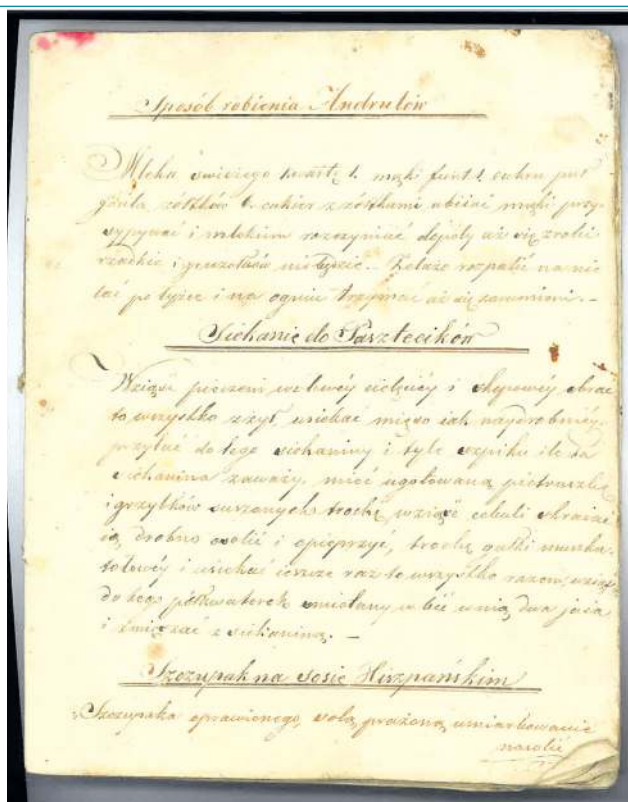 Sposób robienia Andrutów
Mleka świeżego kwartę 1. mąki funt 1. cukru pół
funta żółtków 6. cukier z żółtkami ubijać mąki przy-
sypywać i mlekiem rozczyniać dopóty aż się zrobi
rzadkie i gruzołków nie będzie. – Żelazo rozpalić na nie
lać po łyżce i na ogniu trzymać aż się zarumieni. –
Siekanie do Pasztecików
Wziąść pieczeni wołowéy cielęcéy i skopowéy obrać
to wszystko z żył, usiekać mięso iak naydrobniéy,
przydać do tego siekaniny i tyle szpiku ile ta
siekanina zaważy, mieć ugotowaną pietruszkę
i grzybków suszonych trochę, wziąść cebuli skraiać
ią drobno osolić i opieprzyć, trochę gałki muszka-
tołowéy i usiekać ieszcze raz to wszystko razem, wziąść
do tego półkwaterek śmietany w bić w nią dwa jaja
i zmięszać z siekaniną. –
Szczupak na sosie Hiszpańskim
Szczupaka oprawionego, solą prażoną umiarkowanie
nasolić